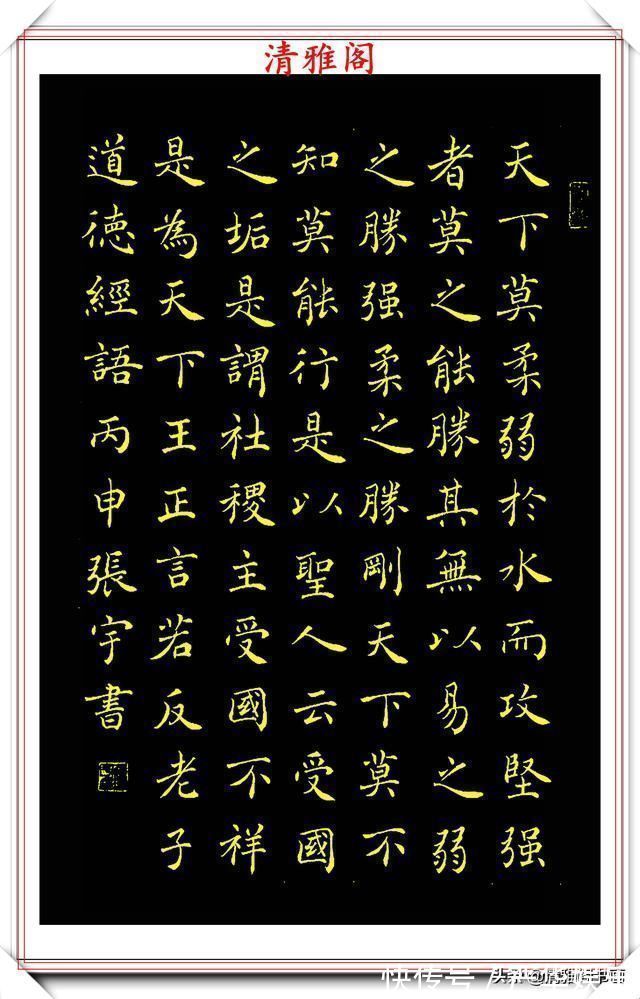 清雅阁
天下莫柔弱於水而攻堅强
者莫之能勝其無以易之弱
之勝强柔之勝剛天下莫不
知莫能行是以聖人云受國
之垢是謂社稷主受國不祥
是為天下王正言若反老子
道德經語丙申張宇書
快传号
头条